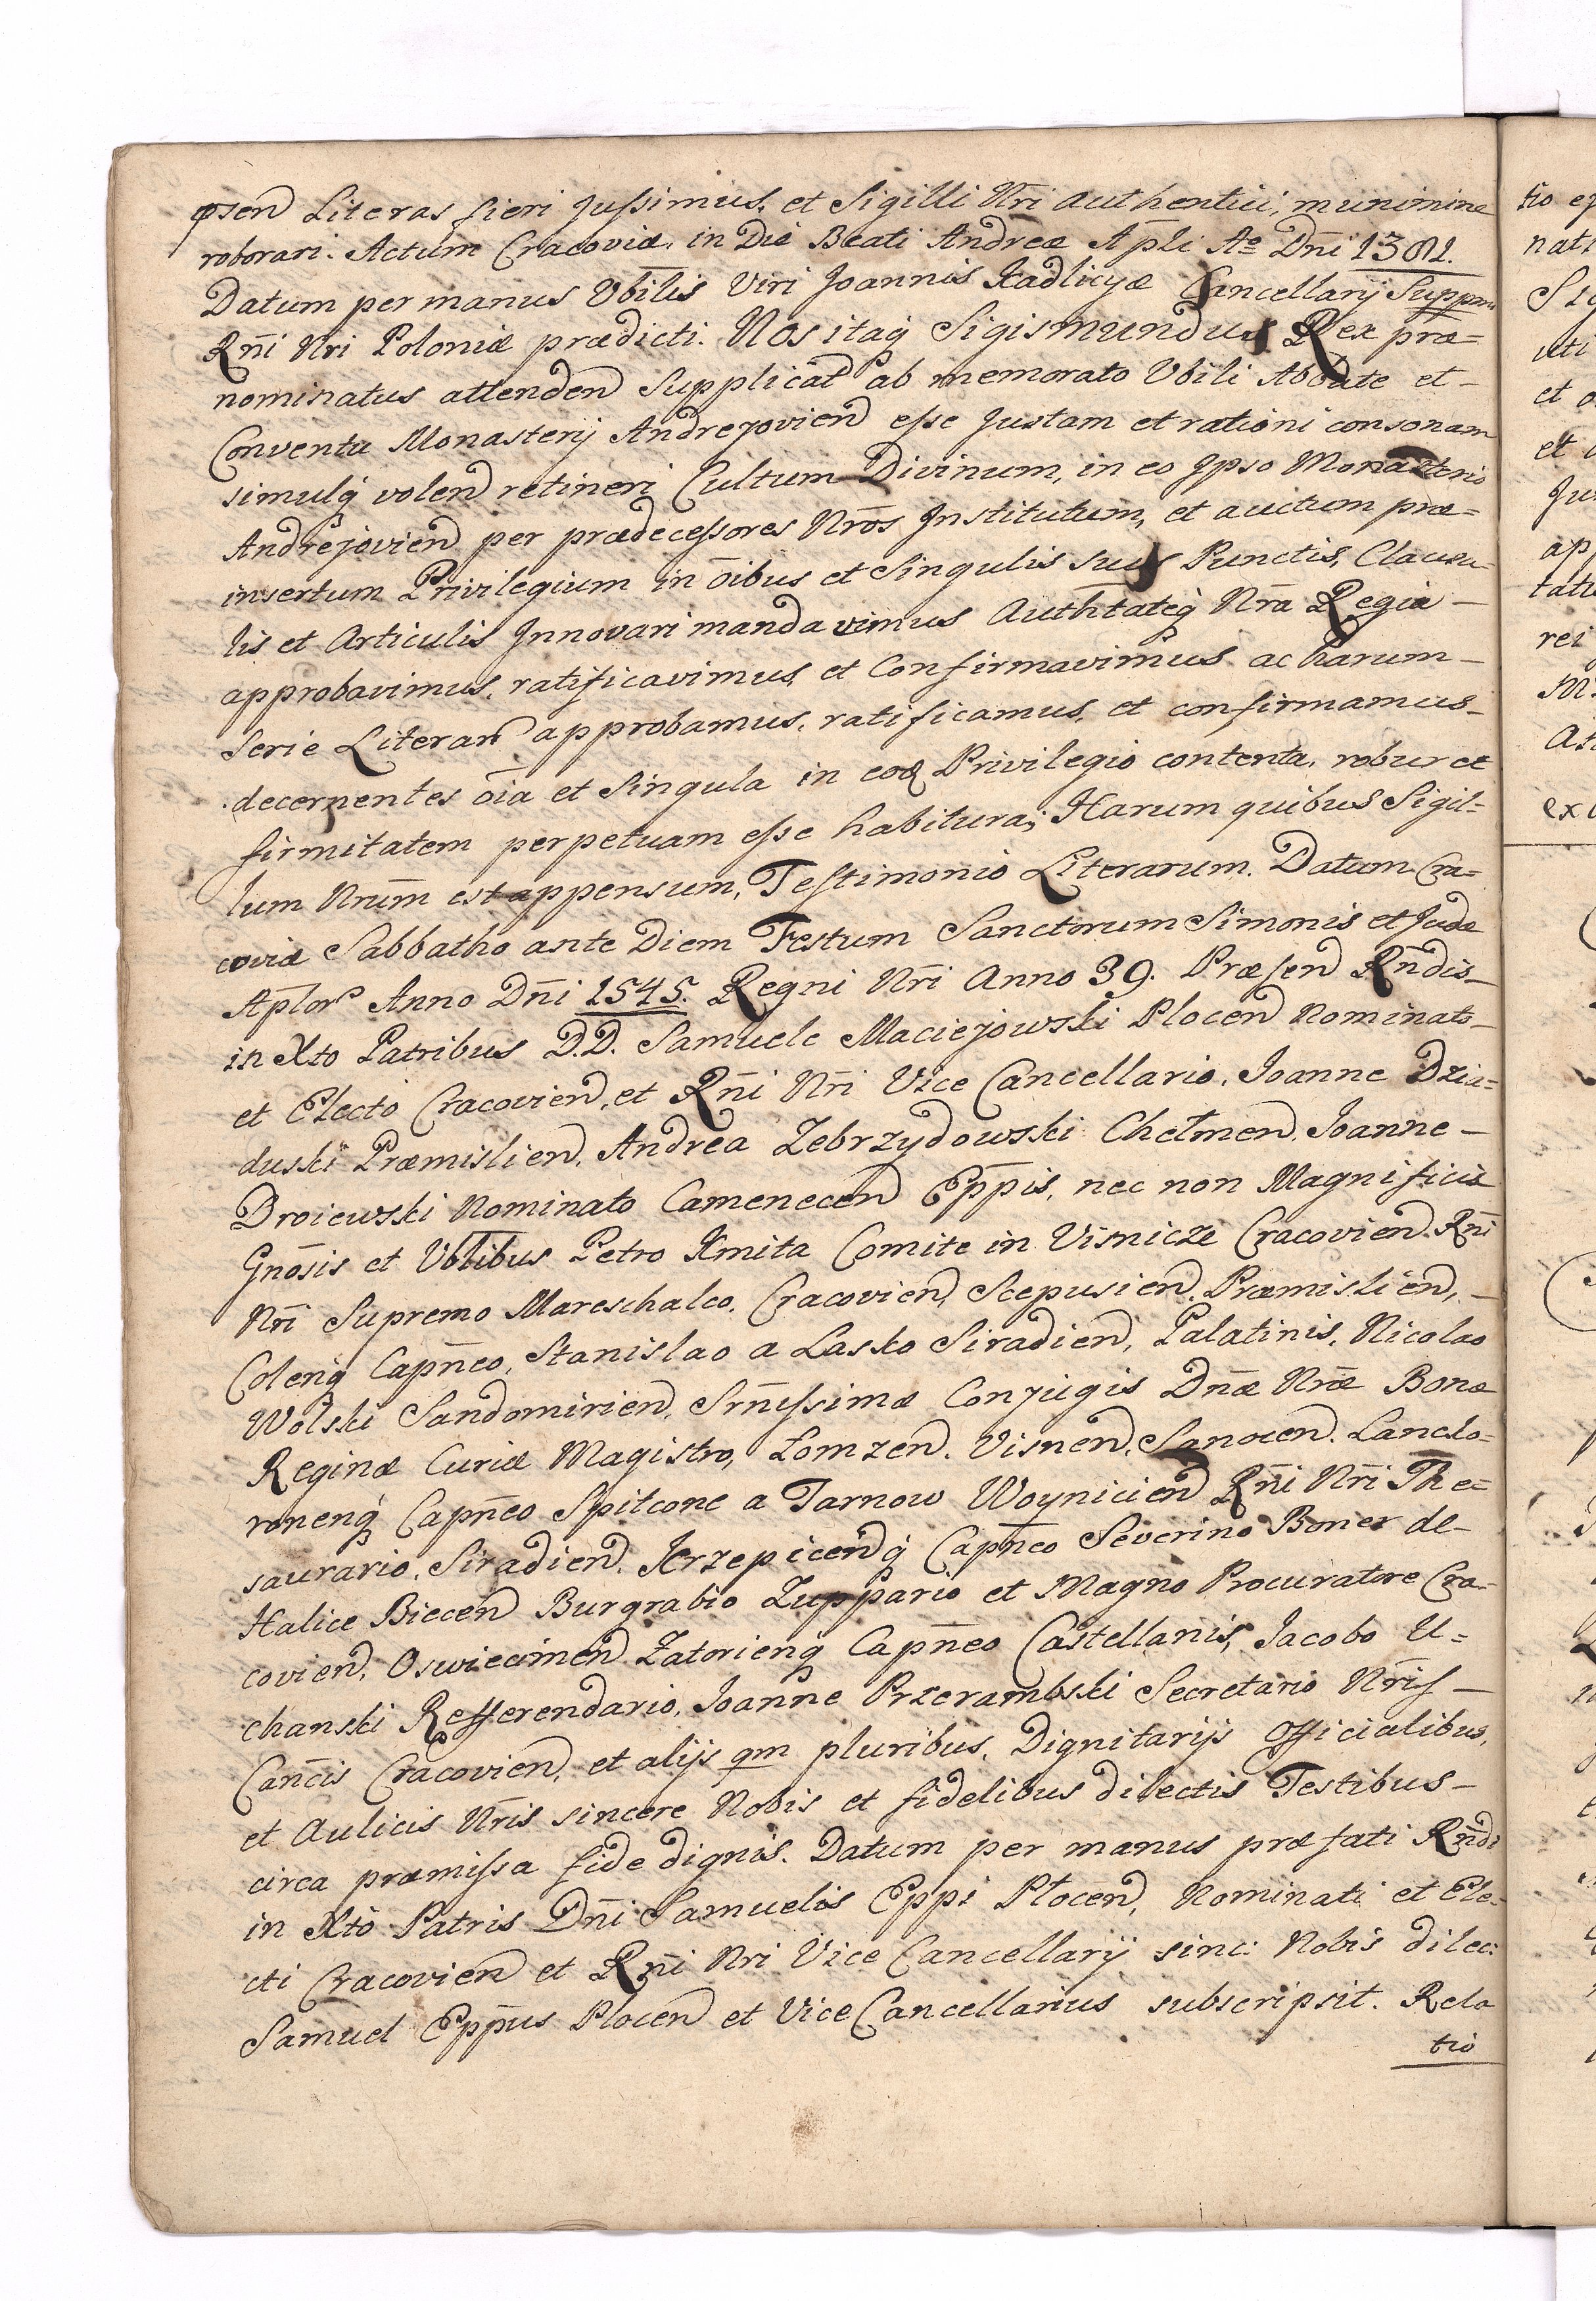 psen Literas fieri Jussimus, et Sigilli Nri Authentici, munimine
roborari. Actum Cracoviæ, in Die Beati Andreæ Apli Ao Dni 1381.
Datum per manus Vbilis Viri Joannis Kadlicyæ Cancellarij Suppmi
Rni Nri Poloniæ prædicti. Nos itaq Sigismundus Rex præ=
nominatus attenden Supplicat ab memorato Vbili Abbate et
Conventu Monasterij Andrejovien esse Justam et rationi consonam
simulq volen retineri Cultum Divinum, in eo Jpso Monasterio
Andrejovien per prædecessores Nros Jnstitutum, et auctum præ=
insertum Privilegium in oibus et Singulis suis Punctis, Clausu=
lis et Articulis Jnnovari mandavimus Authtateq Nra Regia
approbavimus, ratificavimus, et Confirmavimus ac harum
Serie Literar approbamus, ratificamus, et confirmamus
decernentes oia et Singula in eod Privilegio contenta, robur et
firmitatem perpetuam esse habitura; Harum quibus Sigil=
lum Nrum est appensum, Testimonio Literarum. Datum Cra=
coviæ Sabbatho ante Diem Festum Sanctorum Simonis et Judæ
Aplor Anno Dni 1545. Regni Nri Anno 39. Præsen Rndis
in Xto Patribus D.D. Samuele Maciejowski Plocen Nominato
et Electo Cracovien, et Rni Nri Vice Cancellario, Joanne Dzia=
duski Præmislien, Andrea Zebrzydowski Chełmen, Joanne
Droiewski Nominato Camenecen Eppis, nec non Magnificis
Gnosis et Vblibus Petro Kmita Comite in Visnicze Cracovien Rni
Nri Supremo Mareschalco, Cracovien, Scepusien, Præmislien,
Colenq Capneo, Stanislao a Lasko Siradien, Palatinis, Nicolao
Wolski Sandomirien, Srnissimæ Conjugis Dnæ Nræ Bonæ
Reginæ Curiæ Magistro, Lomzen. Visnen, Sanocen. Lanclo=
ronenq Capneo Spitcone a Tarnow Woynicien Rni Nri The=
saurario, Siradien, Krzepicenq Capneo Severino Boner de
Halice Biecen Burgrabio Zuppario et Magno Procuratore Cra=
covien, Oswiecimen Zatorienq Capneo Castellanis, Jacobo U=
chanski Refferendario, Joanne Przerambski Secretario Nris
Cancis Cracovien, et alijs qm pluribus, Dignitarijs Officialibus,
et Aulicis Nris sincere Nobis et fidelibus dilectis Testibus
circa præmissa fide dignis. Datum per manus præfati Rndi
in Xto Patris Dni Samuelis Eppi Płocen, Nominati et Ele=
cti Cracovien et Rni Nri Vice Cancellarij sinc: Nobis dilec:
Samuel Eppus Plocen et Vice Cancellarius subscripsit. Rela
tio